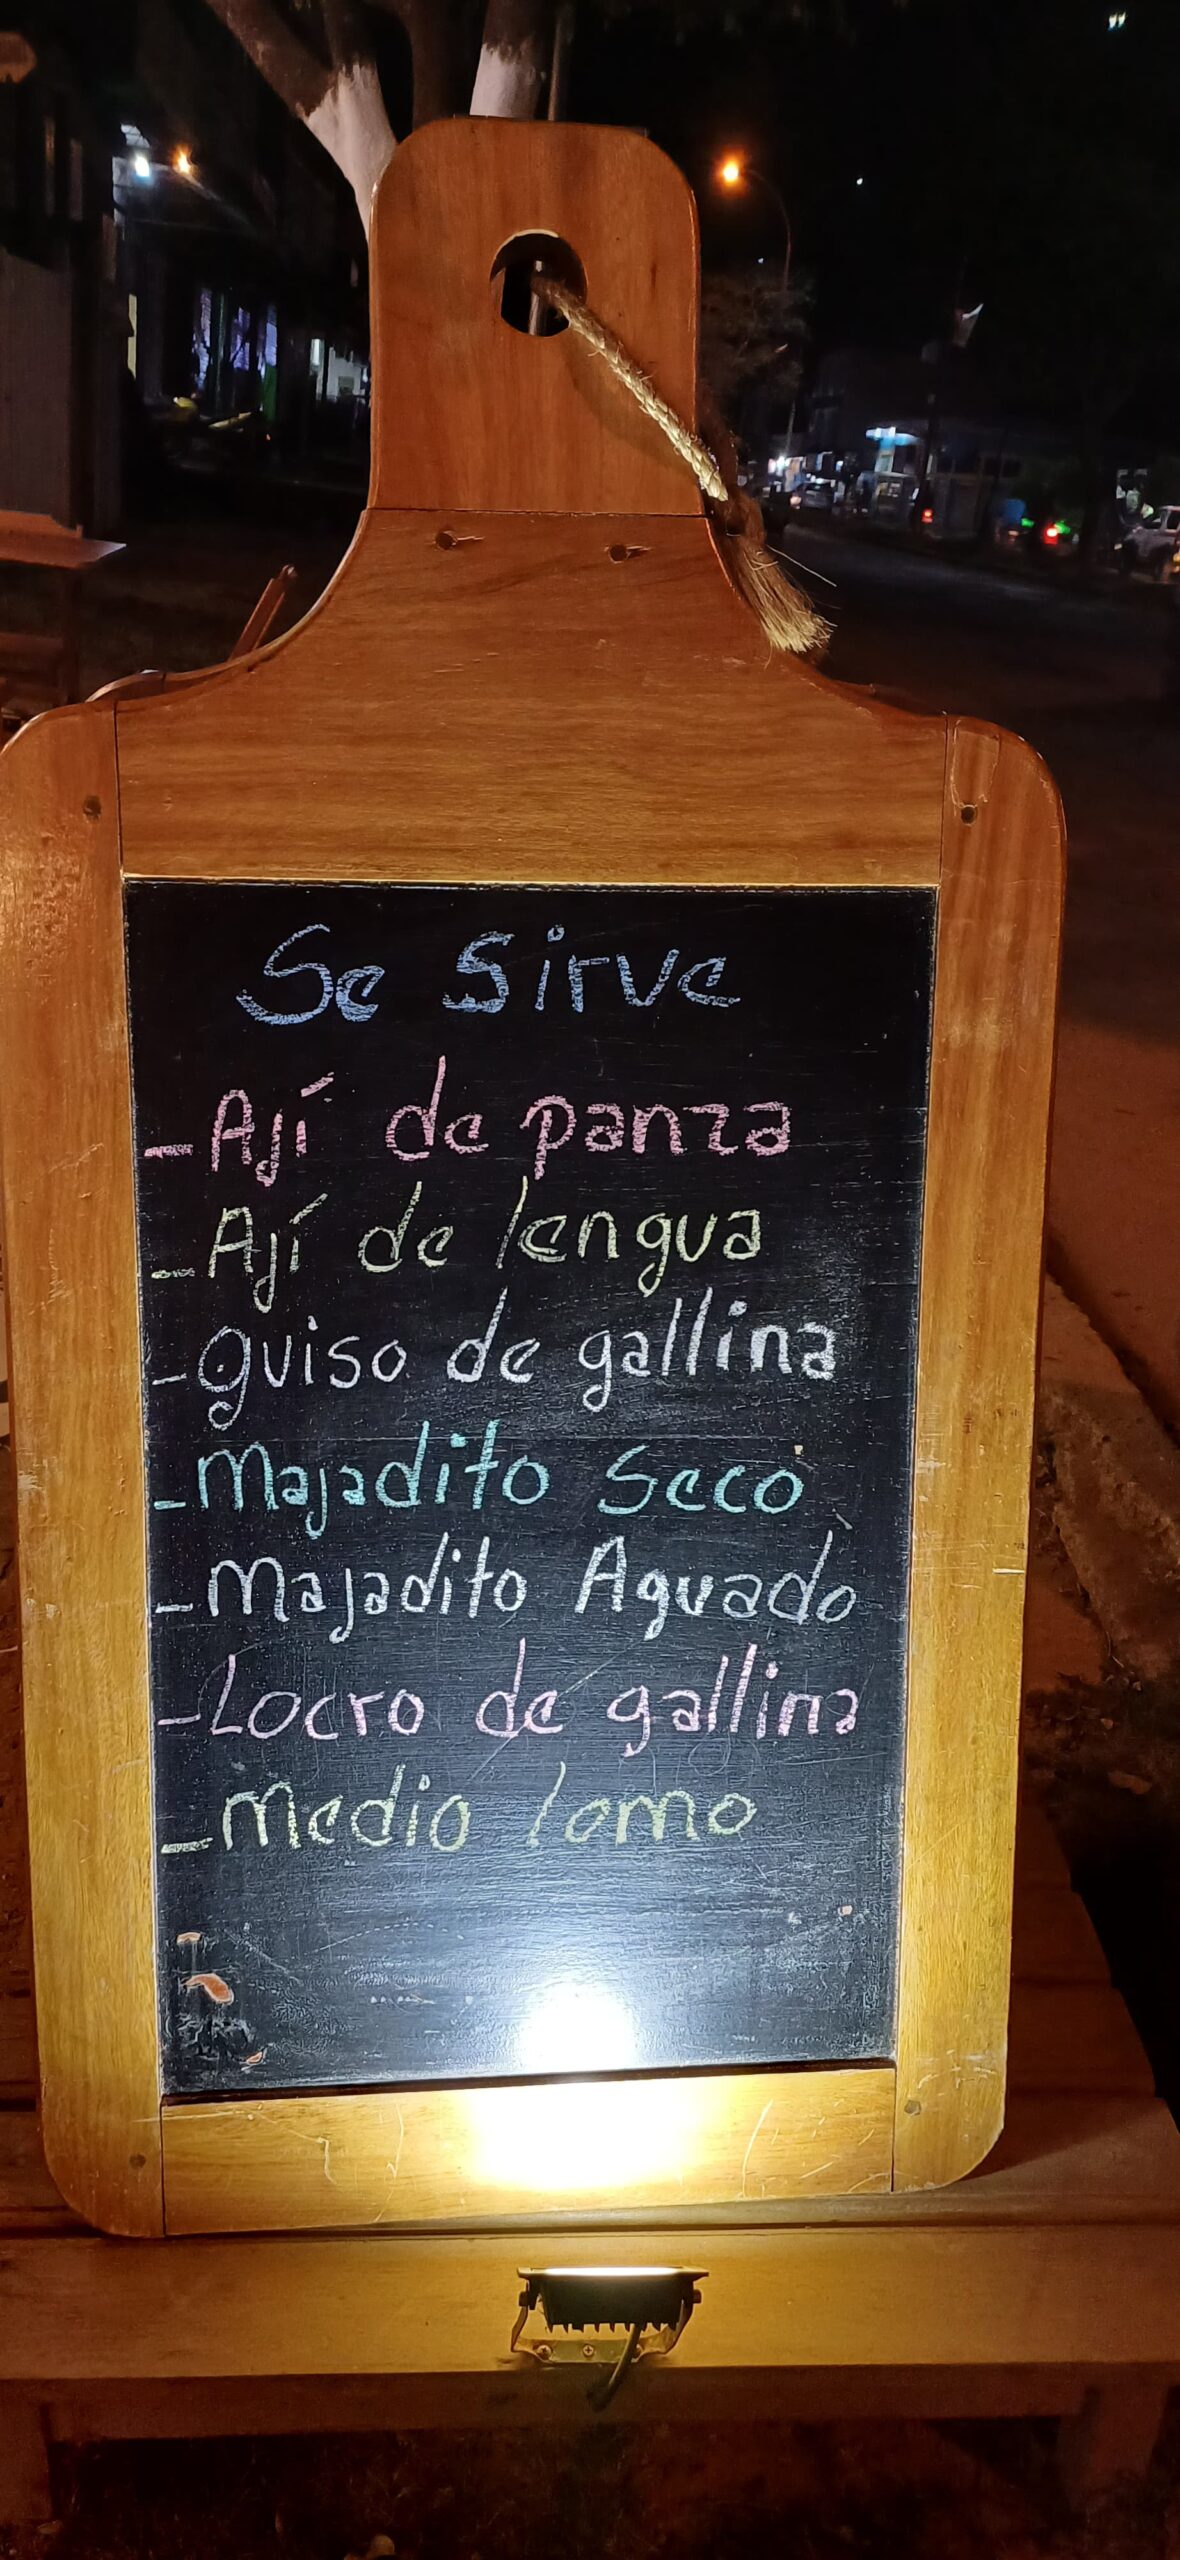 Se Sirve
- Ají de panza
- Ají de lengua
- guiso de gallina
- Majadito Seco
- Majadito Aguado
- Locro de gallina
- Medio lomo